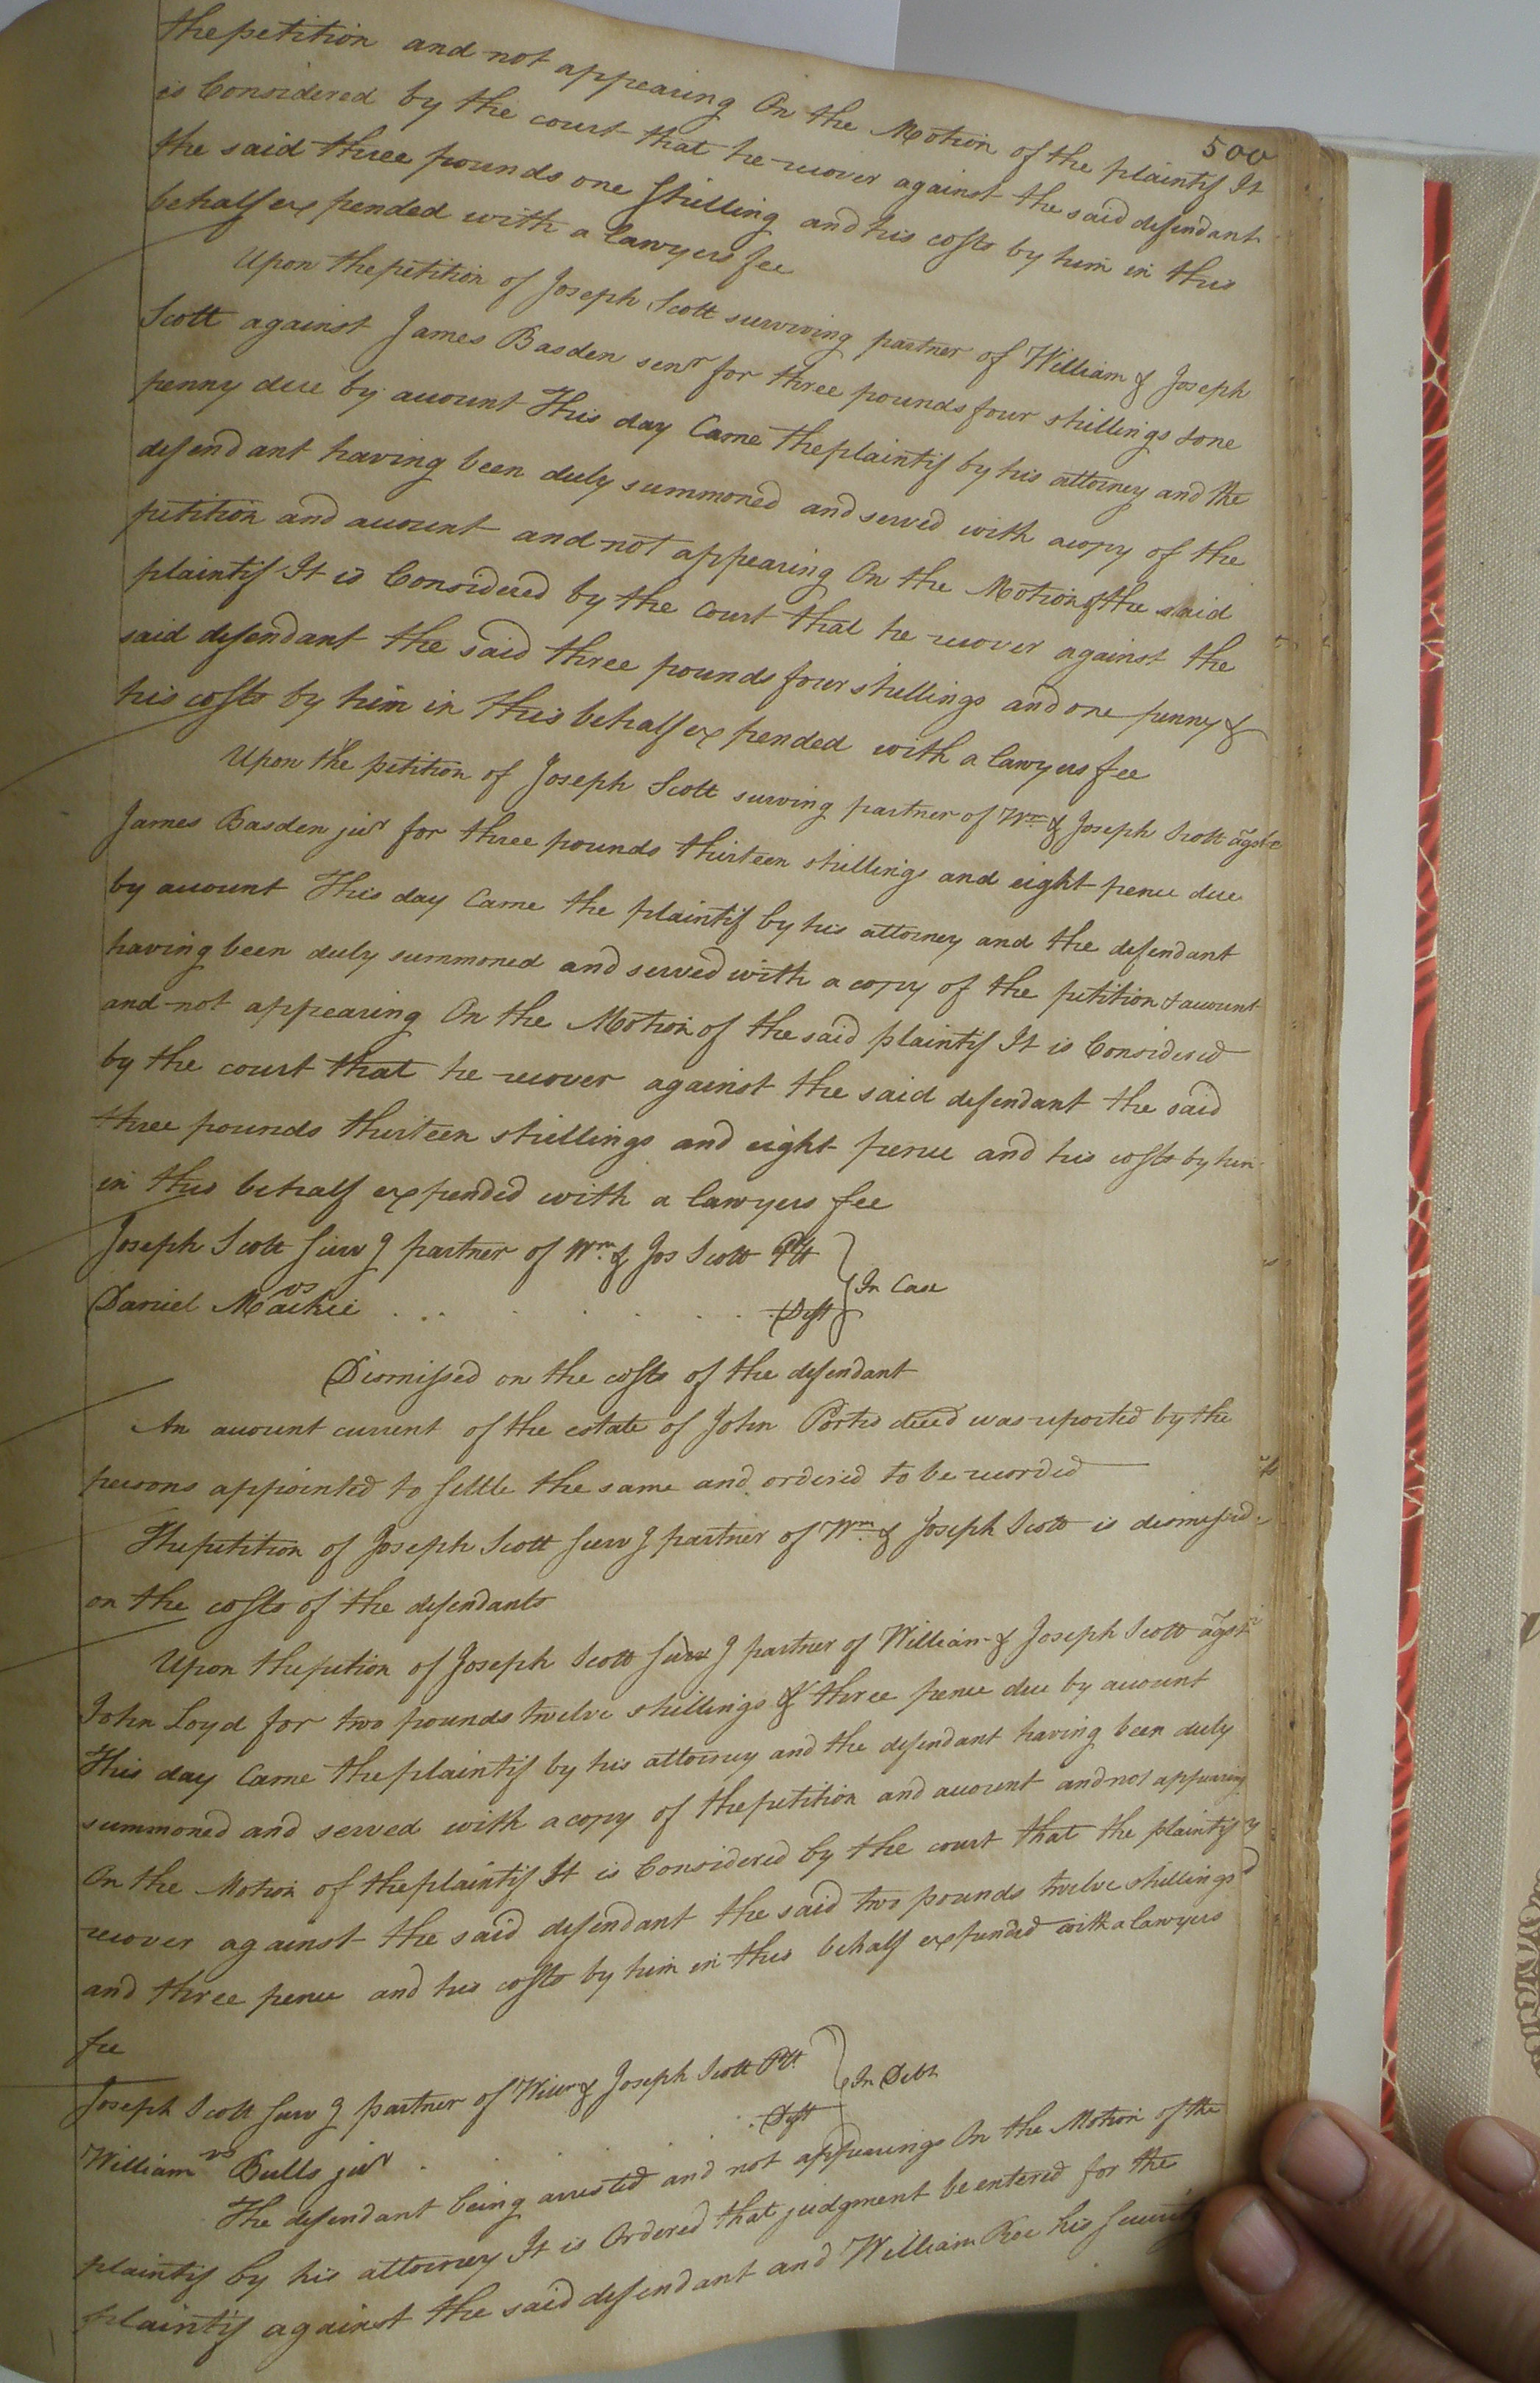 500
the petition and not appearing On the Motion of the plaintif It
is Considered by the court that he recover against the said defendant
the said three pounds one shilling and his costs by him in this
behalf expended with a lawyers fee
Upon the petition of Joseph Scott surviving partner of William & Joseph
Scott against James Basden senr for three pounds four shillings & one
penny due by account This day Came the plaintif by his attorney and the
defendant having been duly summoned and served with a copy of the
petition and account and not appearing On the Motion of the said
plaintif It is Considered by the Court that he recover against the
said defendant the said three pounds four shillings and one penny &
his costs by him in this behalf expended with a lawyers fee
Upon the petition of Joseph Scott surving partner of Wm & Joseph Scott agst
James Basden jur for three pounds thirteen shillings and eight pence due
by account This day Came the plaintif by his attorney and the defendant
having been duly summoned and served with a copy of the petition & account
and not appearing On the Motion of the said plaintif It is Considered
by the court that he recover against the said defendant the said
three pounds thirteen shillings and eight pence and his costs by him
in this behalf expended with a lawyers fee
Joseph Scott Surv g partner of Wm & Jos Scott Plt
vs In Case
Daniel Mackie . . . . . . . Deft
Dismissed on the costs of the defendant
An account current of the estate of John Portis decd was reported by the
persons appointed to settle the same and ordered to be recorded
The petition of Joseph Scott Surv g partner of Wm & Joseph Scott is dismissed
on the costs of the defendants
Upon the petion of Joseph Scott Surv g partner of William & Joseph Scott agst
John Loyd for two pounds twelve shillings & three pence due by account
This day Came the plaintif by his attorney and the defendant having been duly
summoned and served with a copy of the petition and account and not appearing
On the Motion of the plaintif It is Considered by the court that the plaintif
recover against the said defendant the said two pounds twelve shillings
and three pence and his costs by him in this behalf expended with a lawyers
fee
Joseph Scott Surv g partner of Willm & Joseph Scott Plt
vs In Debt
William Bulls jur . . . . Deft
The defendant being arrested and not appearing On the Motion of the
plaintif by his attorney It is Ordered that judgment be entered for the
plaintif against the said defendant and William Roe his security